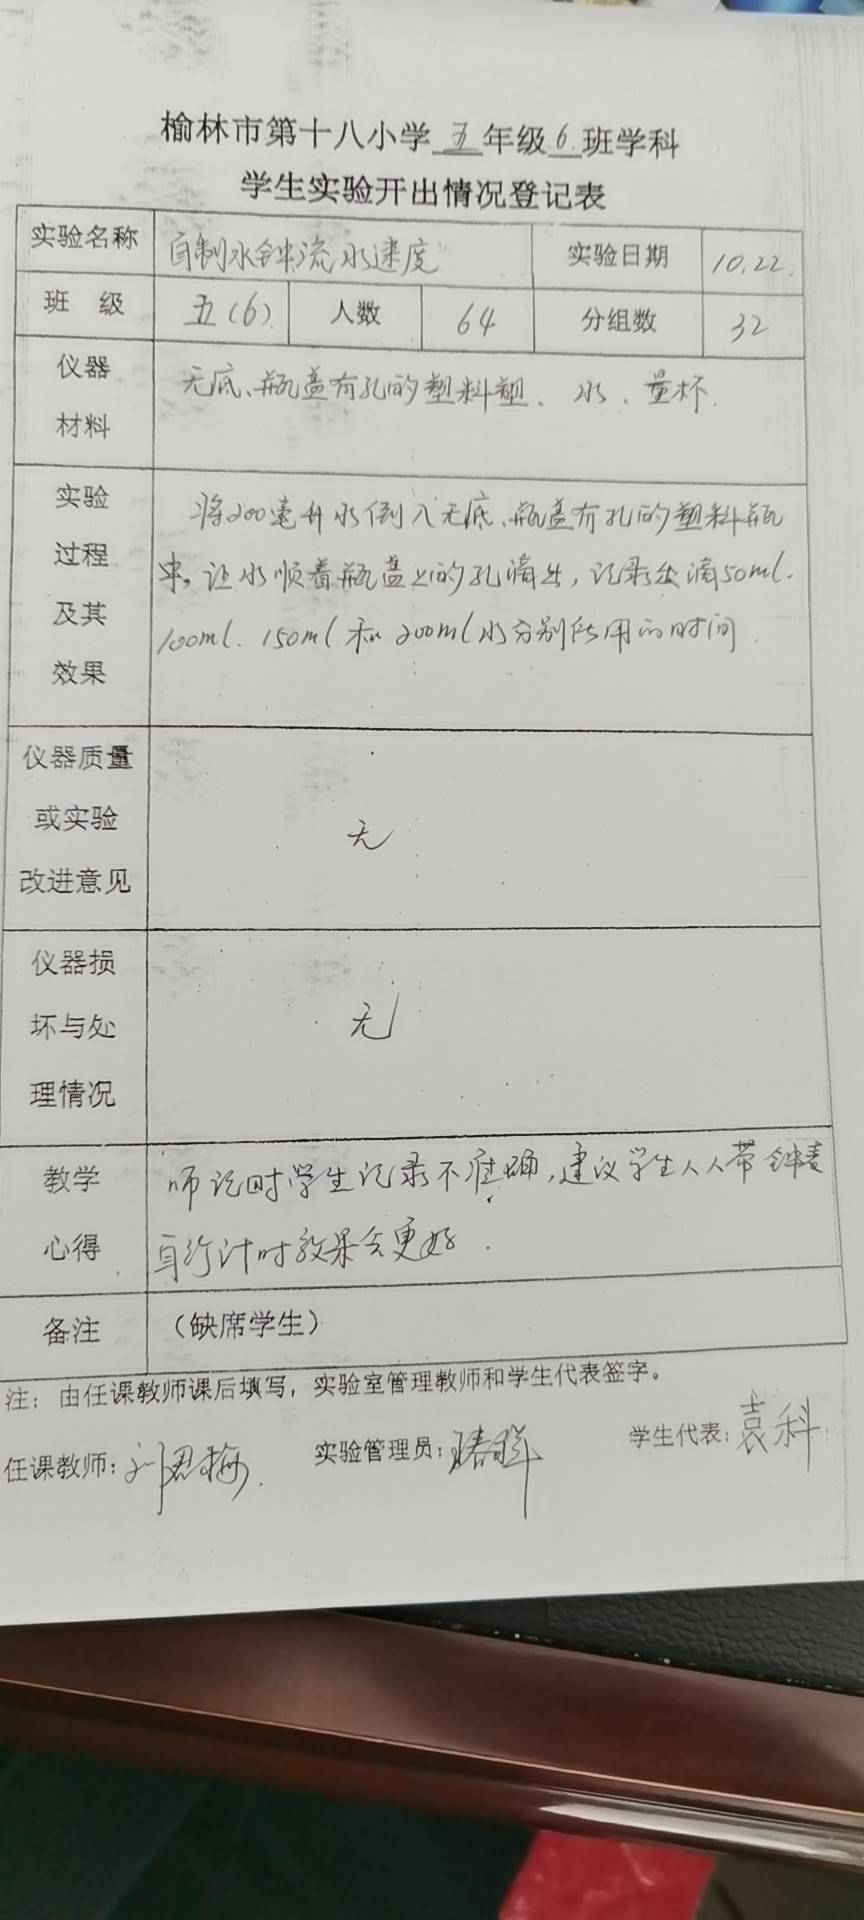 榆林市第十八小学五年级6班学科
学生实验开出情况登记表
实验名称 自制水钟流水速度 实验日期 10.22.
班 级 五(6) 人数 64 分组数 32
仪器
材料
无底、瓶盖有孔的塑料塑、水、量杯.
实验
过程
及其
效果
将200毫升水倒入无底、瓶盖有孔的塑料瓶
中。让水顺着瓶盖上的孔滴出,记录滴50ml.
100ml. 150ml和200ml水分别所用的时间.
仪器质量
或实验
改进意见
无
仪器损
坏与处
理情况
无
教学
心得
师记时学生记录不准确,建议学生人人带钟表
自行计时效果会更好.
备注 (缺席学生)
注：由任课教师课后填写，实验室管理教师和学生代表签字。
任课教师: 实验管理员: 学生代表:袁科